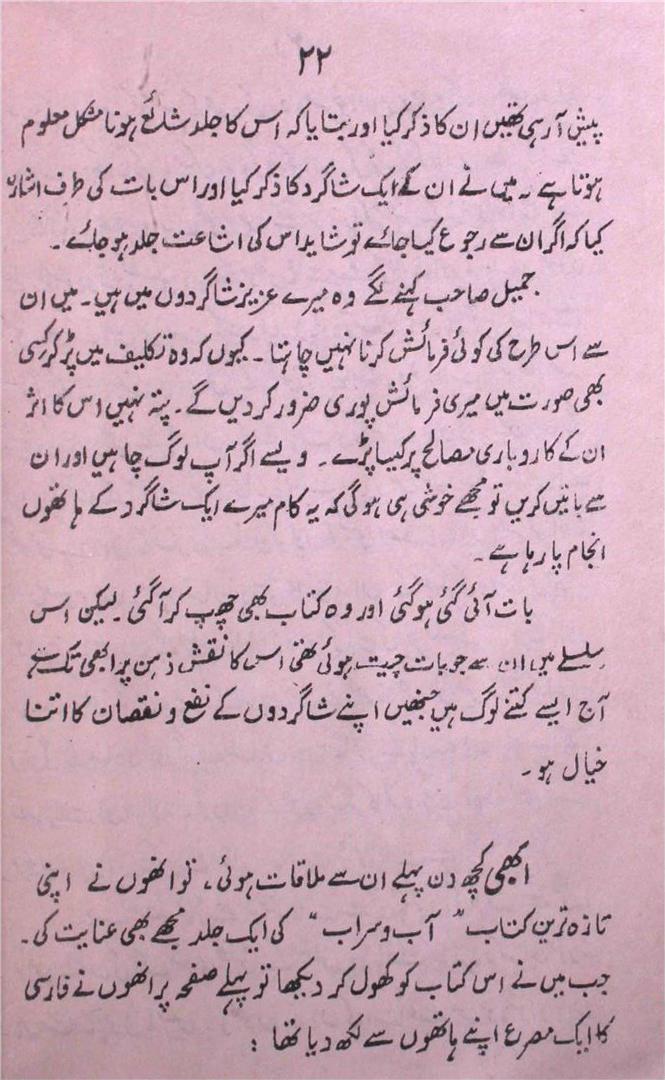 ۲۲
پیش آ رہی تھیں ان کا ذکر کیا اور بتایا کہ اس کا جلد شائع ہونا مشکل معلوم
ہوتا ہے ۔ میں نے ان کے ایک شاگرد کا ذکر کیا اور اس بات کی طرف اشارہ
کیا کہ اگر ان سے رجوع کیا جائے تو شاید اس کی اشاعت جلد ہو جائے ۔
جمیل صاحب کہنے لگے وہ میرے عزیز شاگردوں میں ہیں ۔ میں ان
سے اس طرح کی کوئی فرمائش کرنا نہیں چاہتا ۔ کیوں کہ وہ تکلیف میں پڑ کر کسی
بھی صورت میں میری فرمائش پوری ضرور کر دیں گے ۔ پتہ نہیں اس کا اثر
ان کے کاروباری مصالح پر کیسا پڑے ۔ ویسے اگر آپ لوگ چاہیں اور ان
سے باتیں کریں تو مجھے خوشی ہی ہو گی کہ یہ کام میرے ایک شاگرد کے ہاتھوں
انجام پا رہا ہے ۔
بات آئی گئی ہو گئی اور وہ کتاب بھی چھپ کر آ گئی ۔ لیکن اس
سلسلے میں ان سے جو بات چیت ہوئی تھی اس کا نقش ذہن پر ابھی تک ہے
آج ایسے کتنے لوگ ہیں جنھیں اپنے شاگردوں کے نفع و نقصان کا اتنا
خیال ہو ۔
ابھی کچھ دن پہلے ان سے ملاقات ہوئی ، تو انھوں نے اپنی
تازہ ترین کتاب " آب و سراب " کی ایک جلد مجھے بھی عنایت کی ۔
جب میں نے اس کتاب کو کھول کر دیکھا تو پہلے صفحہ پر انھوں نے فارسی
کا ایک مصرع اپنے ہاتھوں سے لکھ دیا تھا :